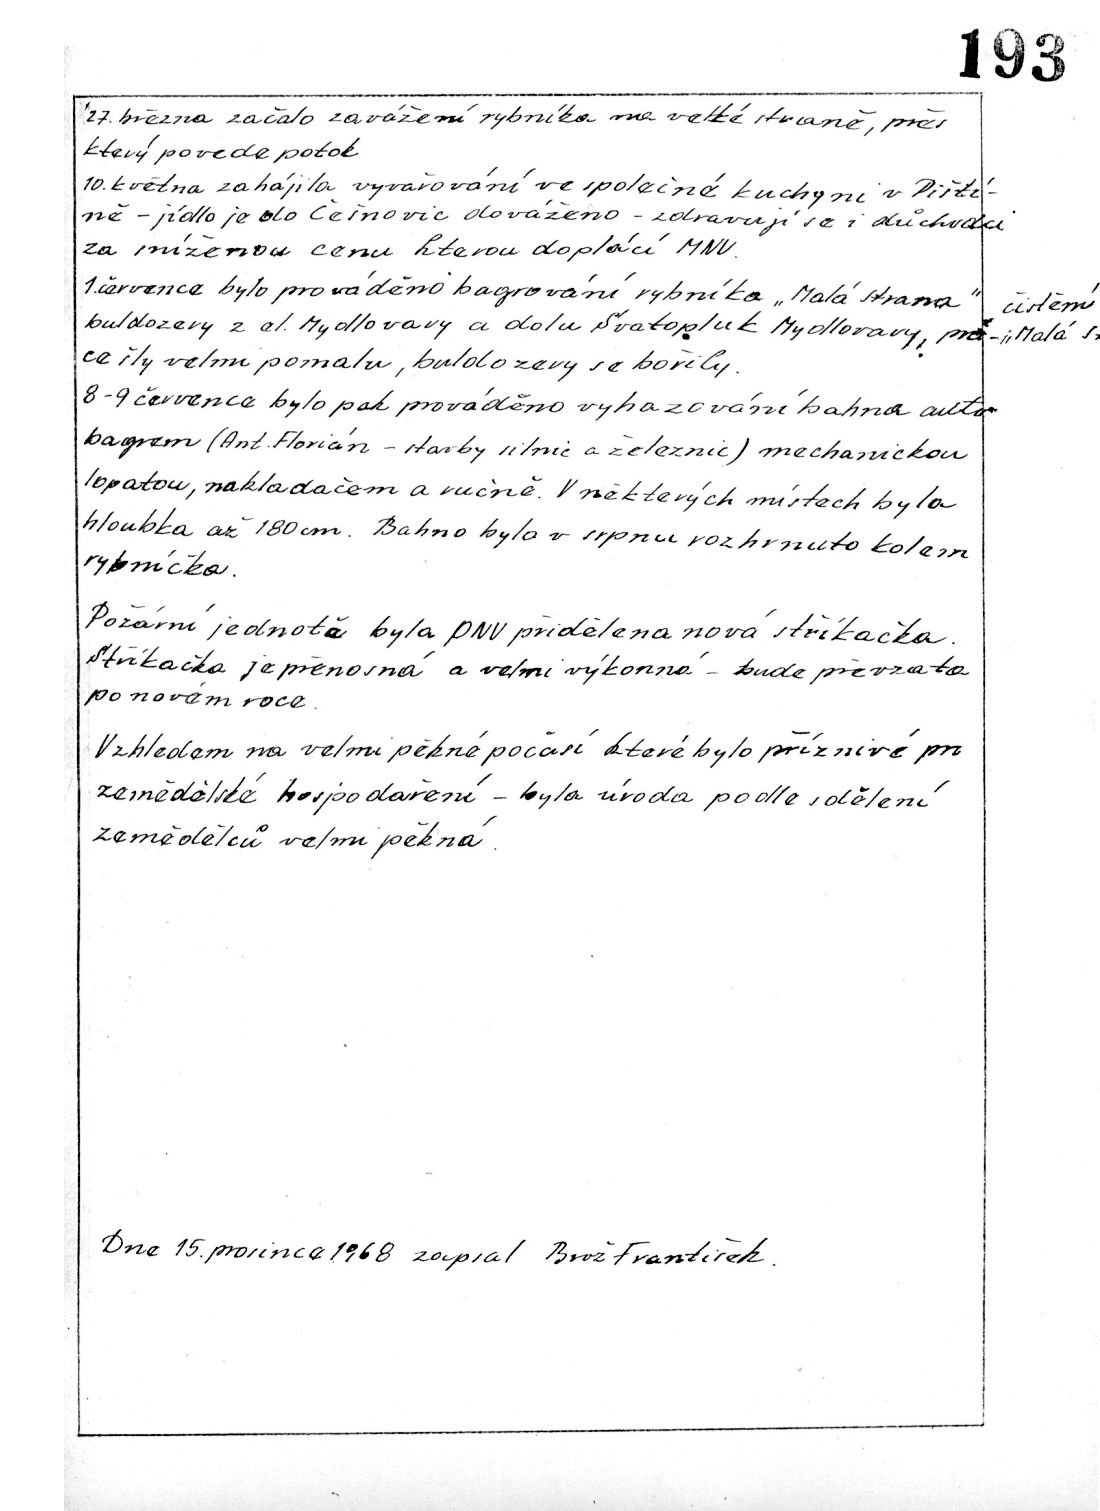 193
27. března začalo zavážení rybníka na velké straně, přes
který povede potok
10. května zahájila vyvařování ve společné kuchyni v Piští-
ně - jídlo je do Češnovic dováženo - zdravují se i důchodci
za sníženou cenu kterou doplácí MNV.
1. července bylo prováděno bagrování rybníka „Malá strana"
čistění
buldozery z el. Mydlovary a dolu Svatopluk Mydlovary, prá-
„Malá
ce šly velmi pomalu, buldozery se bořily.
8-9 července bylo pak prováděno vyhazování bahna auto
bagrem (Ant. Florián - stavby silnic a železnic) mechanickou
lopatou, nakladačem a ručně. V některých místech byla
hloubka až 180 cm. Bahno bylo v srpnu rozhrnuto kolem
rybníčka.
Požární jednotě byla ONV přidělena nová stříkačka.
Stříkačka je přenosná a velmi výkonná - bude převzata
po novém roce.
Vzhledem na velmi pěkné počasí které bylo příznivé pro
zemědělské hospodaření - byla úroda podle sdělení
zemědělců velmi pěkná.
Dne 15. prosince 1968 zapsal Brož František.